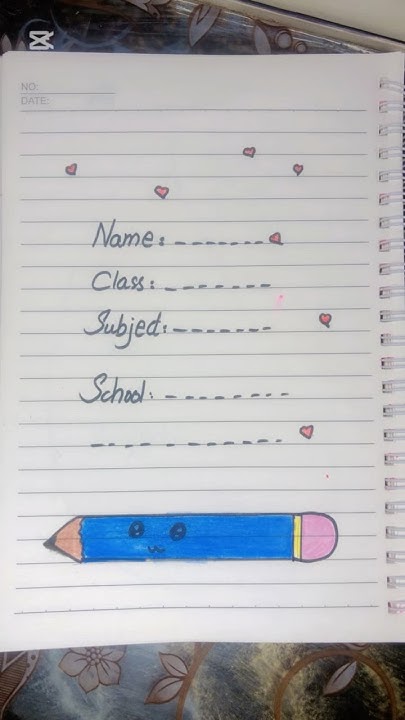 NO:
DATE:
Name: --------
Class: -------
Subject: -------
School: --------
-----------